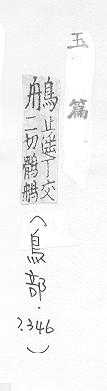 玉篇
鵃止遙丁交二切鶻鵃（鳥部·2346）